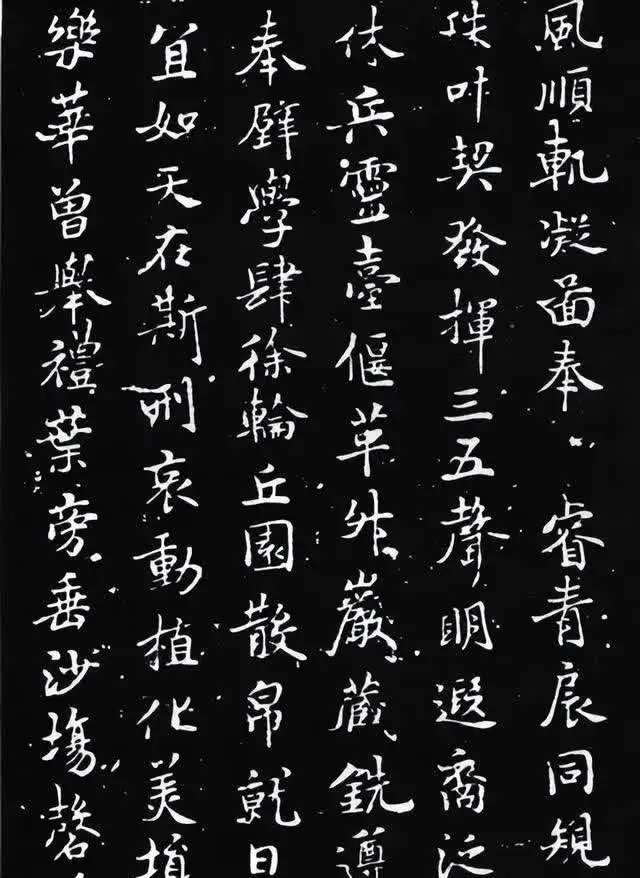 風順軌凝奉睿青扆同規
叶契發揮三五聲明遐裔泛
休兵靈臺偃革巖蔵銑遵
奉學肆徐輪丘園散帛就日
宜如天在斯刑哀動植化美
樂華曾舉禮葉旁垂沙場磬